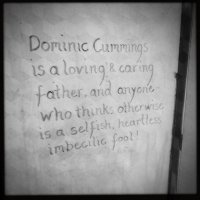 Dominic Cummings
is a loving & caring
father, and anyone
who thinks otherwise
is a selfish, heartless
imbecilic fool!